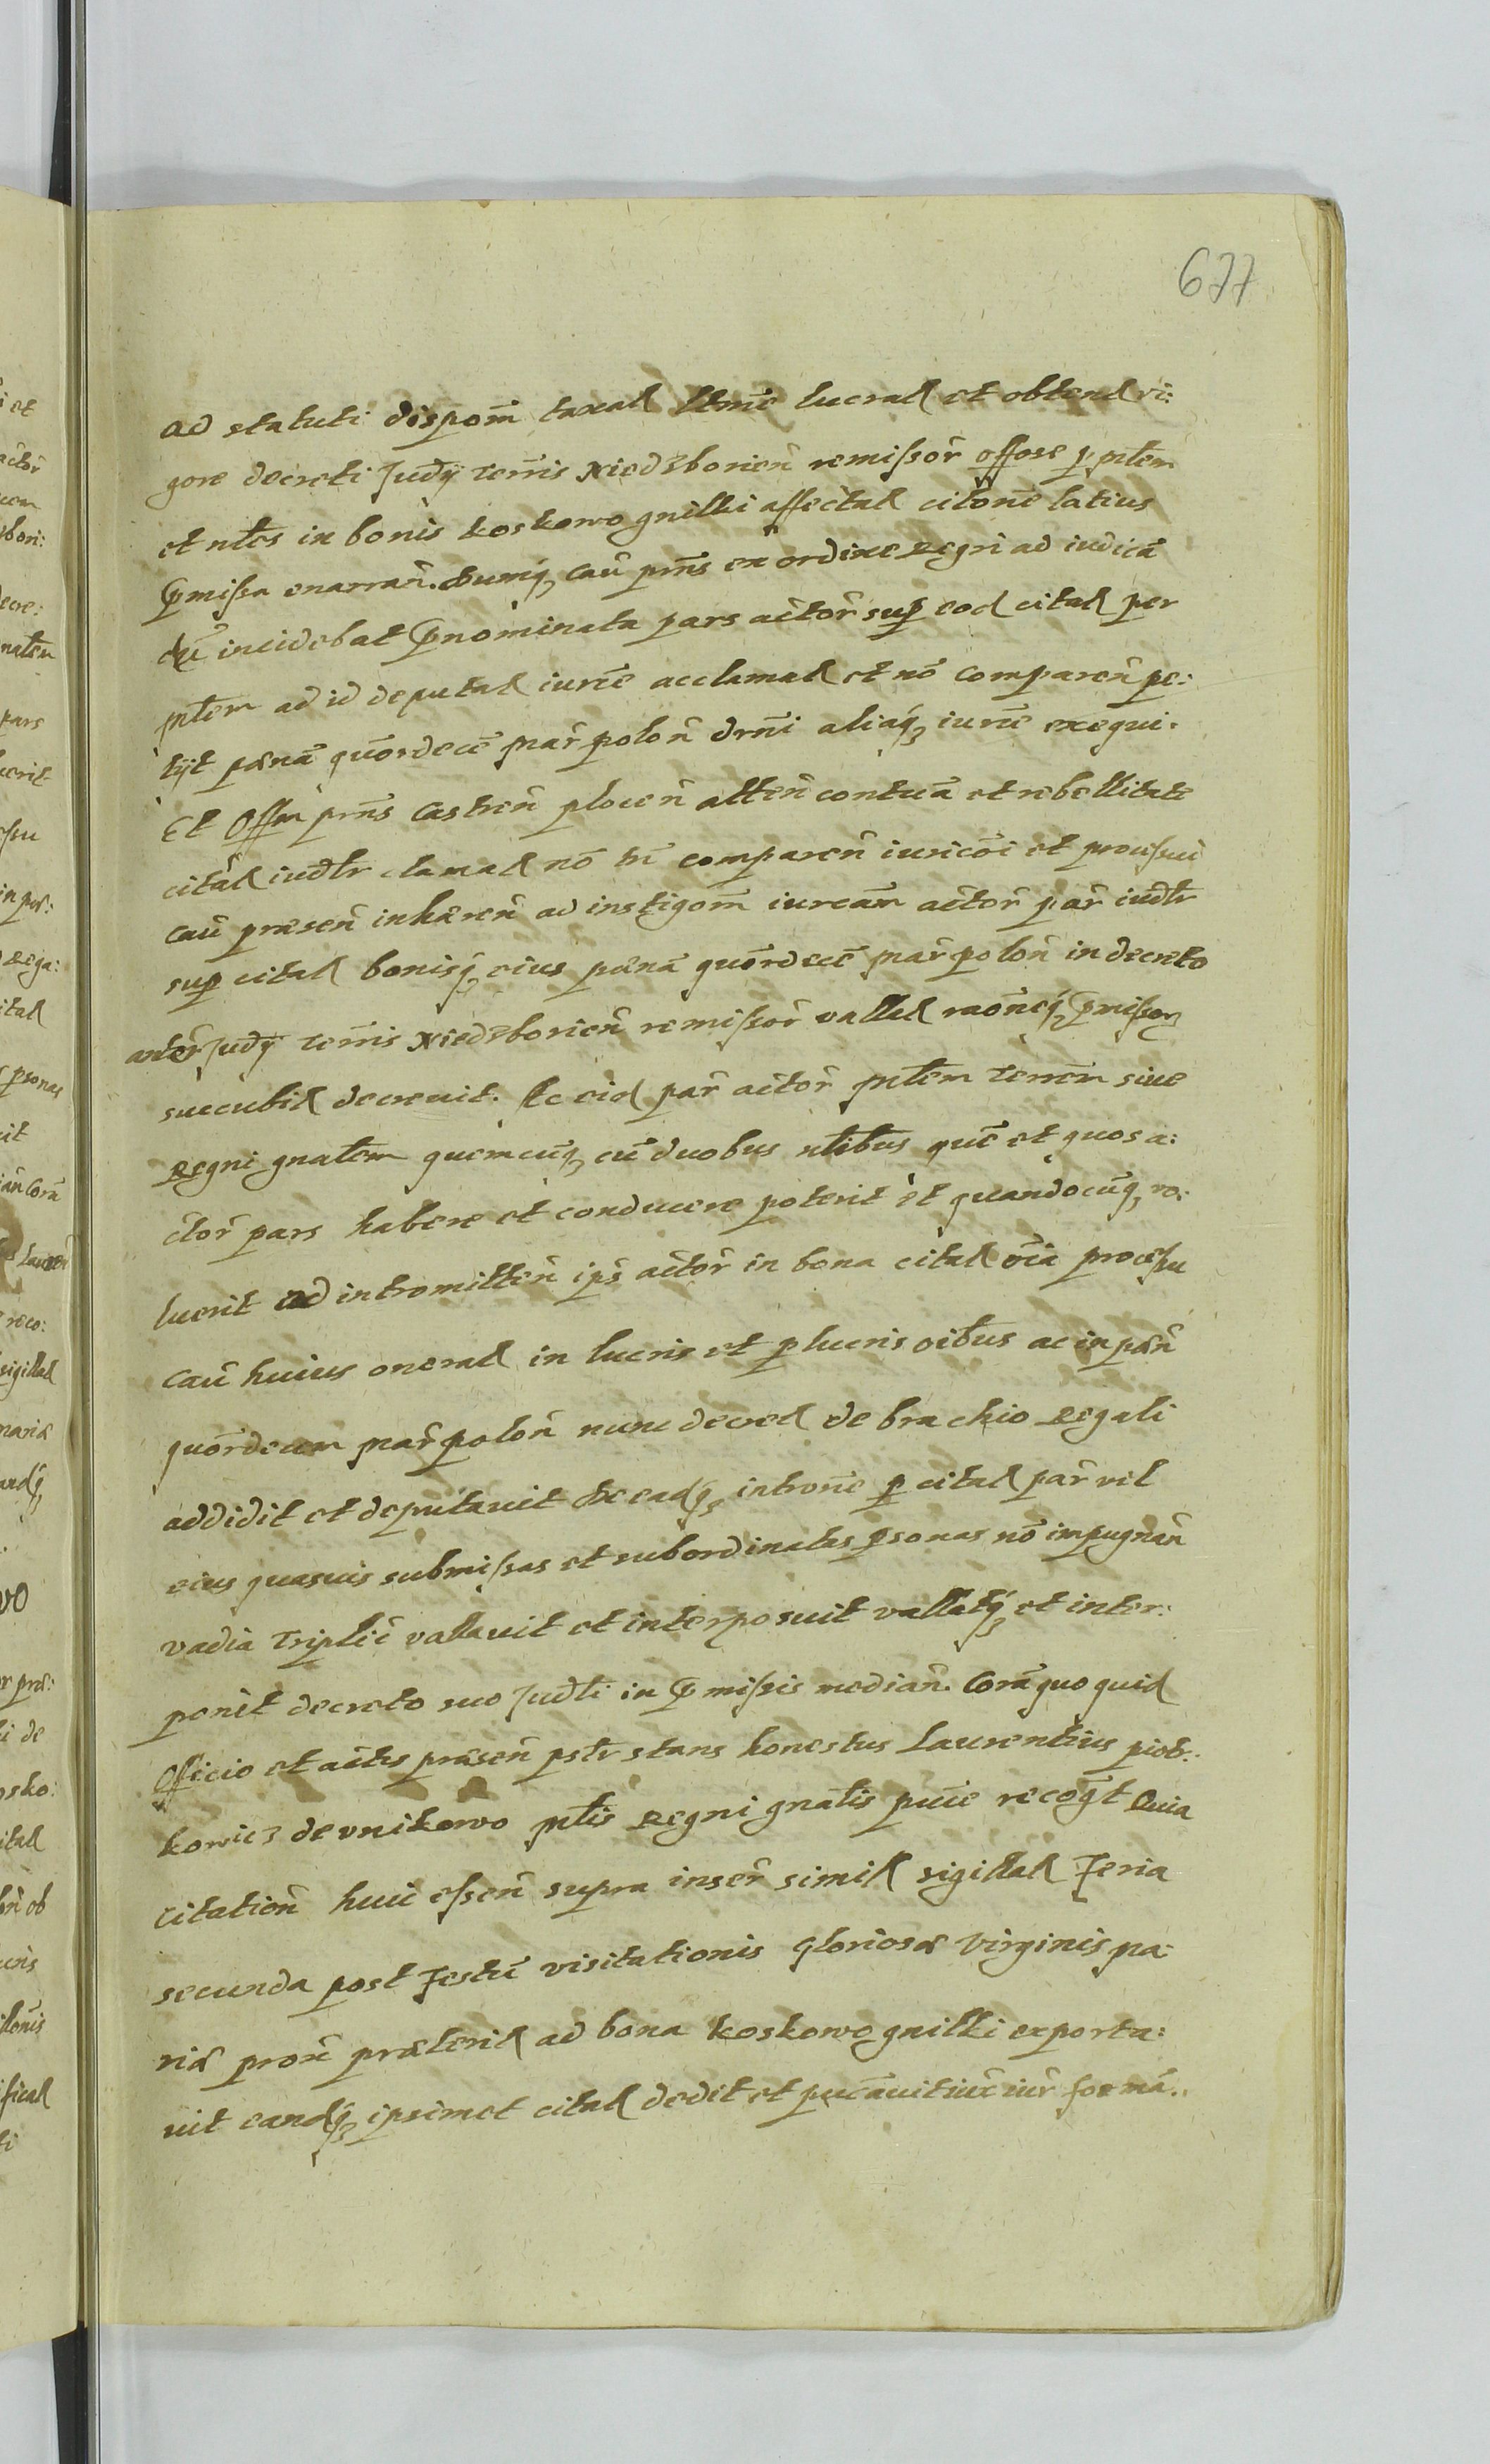 677
ad statuti dispoñ taxat ltmē lucrat et obtent vi:
gore decreti Judÿ terris Niedzborieñ remissor offose p ptem
et nles in bonis koskowo gnilki affectat citone latius
pmissa enarrañ. Cumq cau pñs ex ordine Regri ad iudicā
dū incidebat pnominata pars actor sup eod citat per
ptem ad id deputat iurie acclamat et nō compareñ pe:
tÿt pœnā quordecē mar poloñ drñi aliaq iurie exequi.
Et Offm pñs Castreñ ploceñ atteñ contuā et rebellitate
citat iudlr clamat nō tñ compareñ iuricōi et processui
cau præseñ inhæreñ ad instigoñ iureām actor par iudlr
sup citat bonisq eius pœnā quordecē mar poloñ in decreto
anter Judÿ terris Niedzborieñ remissor vallat raoneq pmissor
succubit decreuit. Ac eid par actor ptem terrem siue
Regni gnalem quemcuq cū duobus nlibus quē et quos a:
ctor pars habere et conducere poterit et quandocuq vo:
luerit ad intromitteñ ips actor in bona citat oīa processu
cau huius onerat in lucris et plucris oibus ac in pœñ
quordecem mar poloñ nunc decret de brachio Regali
addidit et deputauit Deeadq introne p citat par vel
eius quasuis submissas et subordinatas psonas nō impugnañ
vadia tripliċ vallauit et interposuit vallatq et inter:
ponit decreto suo Judli in pmissis mediañ. Corā quo quid
Officio et actis præseñ pslr stans honestus Laurentius piotr:
kowicz de vnikowo ptis Regni gnalis puie recogt Quia
citationē huic esseñ supra inser simil sigillat Feria
secunda post Festū visitationis gloriosæ virginis Ma:
riæ proxē præterit ad bona koskowo gnilki exporta:
uit eandq ipsimet citat dedit et pucauit iux iur formā.